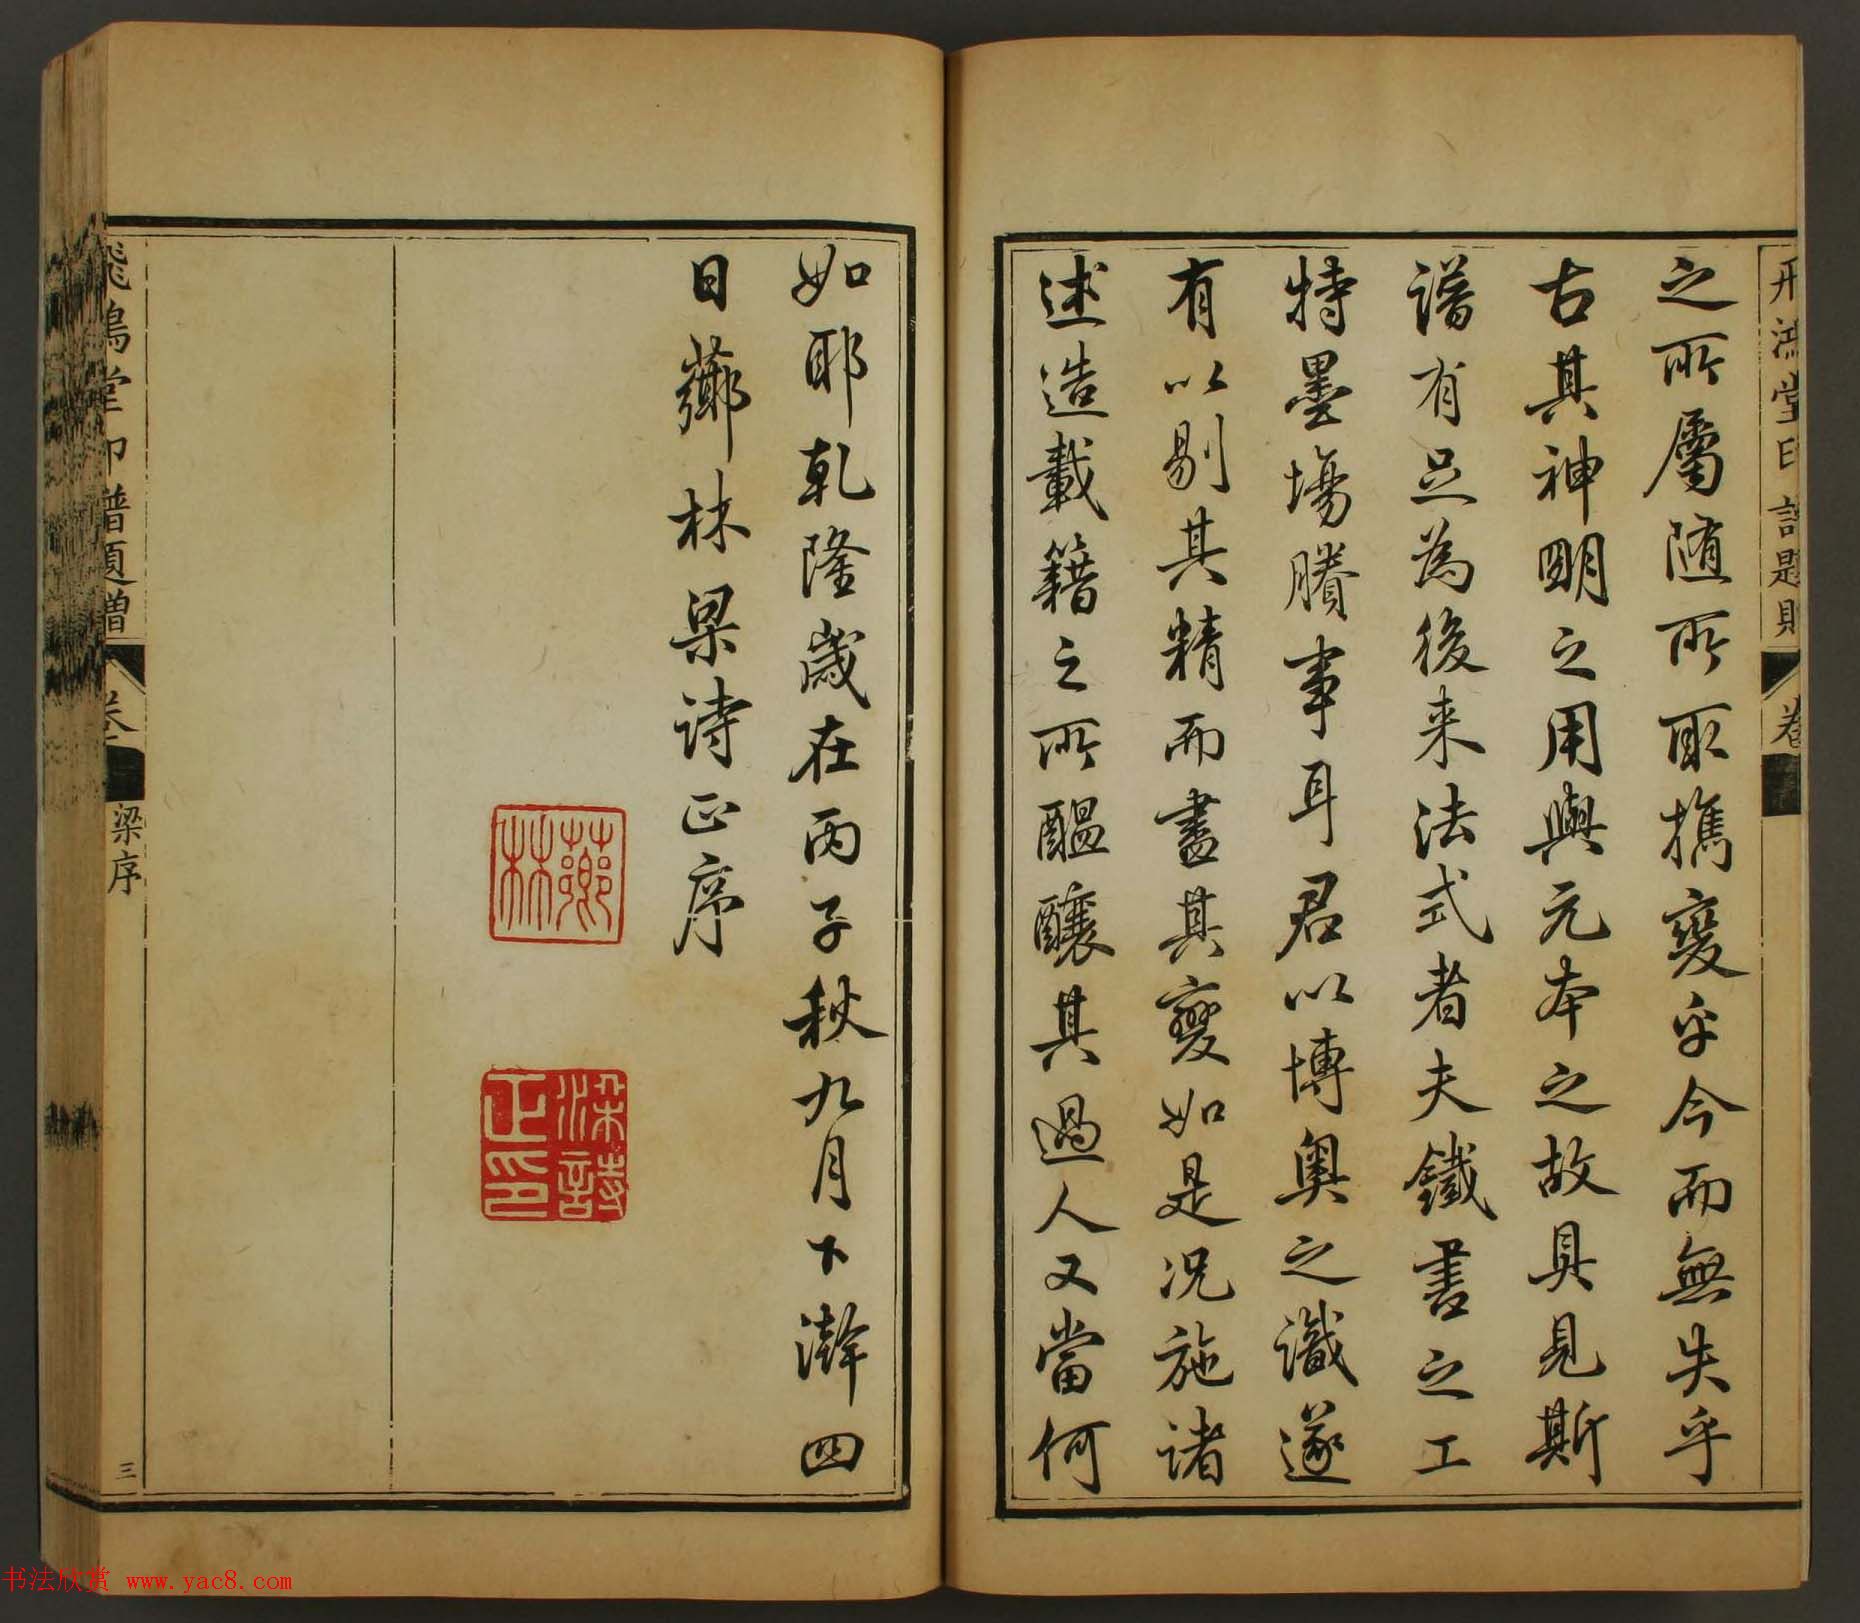 之所屬随所取㩦變乎今而無失乎
古其神明之用與元本之故具見斯
譜有足為後来法式者夫鐵書之工
特墨塲賸事耳君以博奧之識遂
有以剔其精而盡其變如是况施诸
述造載籍之所醖釀其過人又當何
如耶乾隆歲在丙子秋九月下澣四
日薌林梁诗正序
薌林
梁詩正印
飛鴻堂印譜題贈
卷
梁序
三
书法欣赏 www.yac8.com